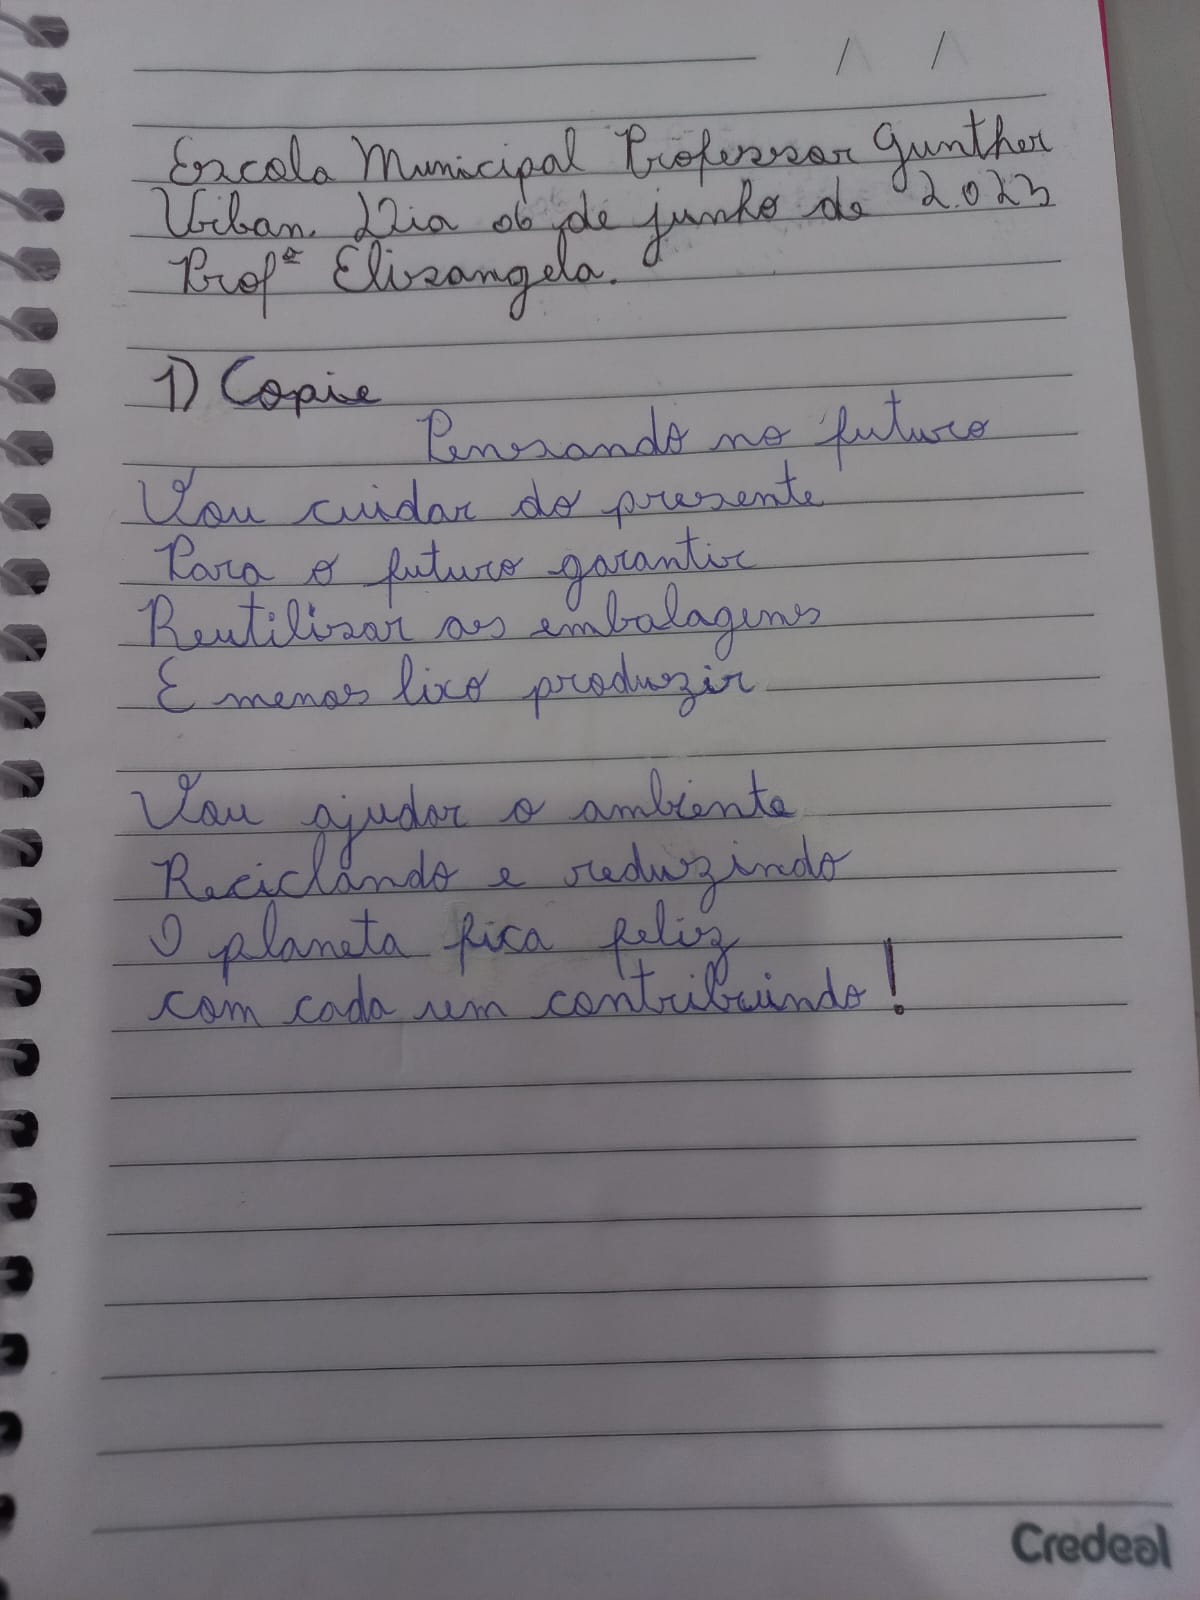 Escola Municipal Professor Gunther
Urban. Dia 06 de junho de 2.023
Profª Elisangela.
1) Copie
Pensando no futuro
Vou cuidar do presente
Para o futuro garantir
Reutilisar as embalagens
E menos lixo produzir
Vou ajudar o ambiente
Reciclando e reduzindo
O planeta fica feliz
com cada um contribuindo!
Credeal